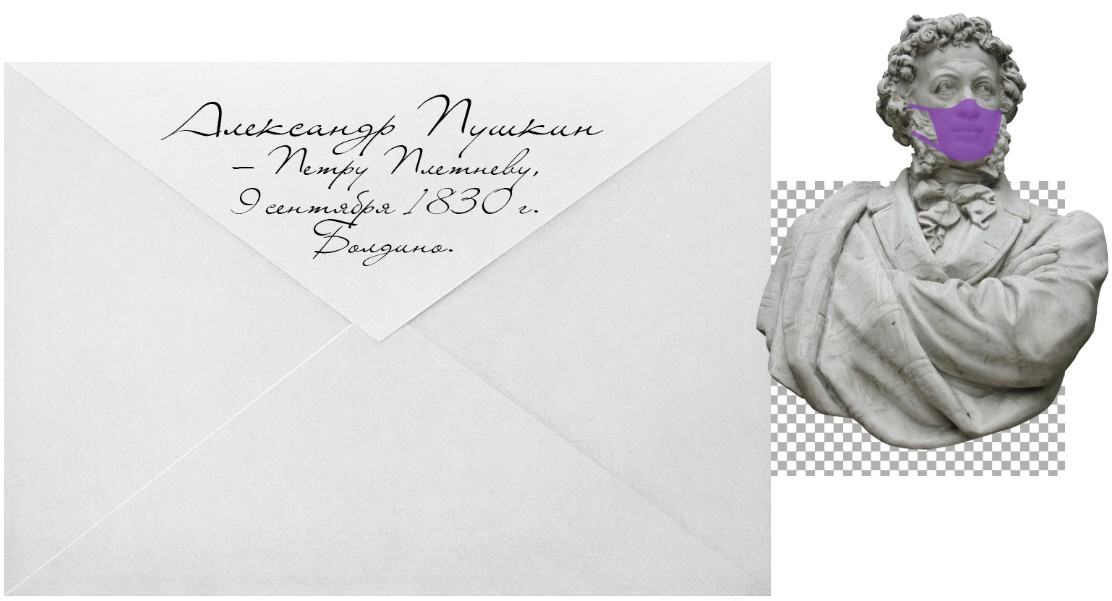 Александр Пушкин
– Петру Плетневу,
9 сентября 1830 г.
Болдино.